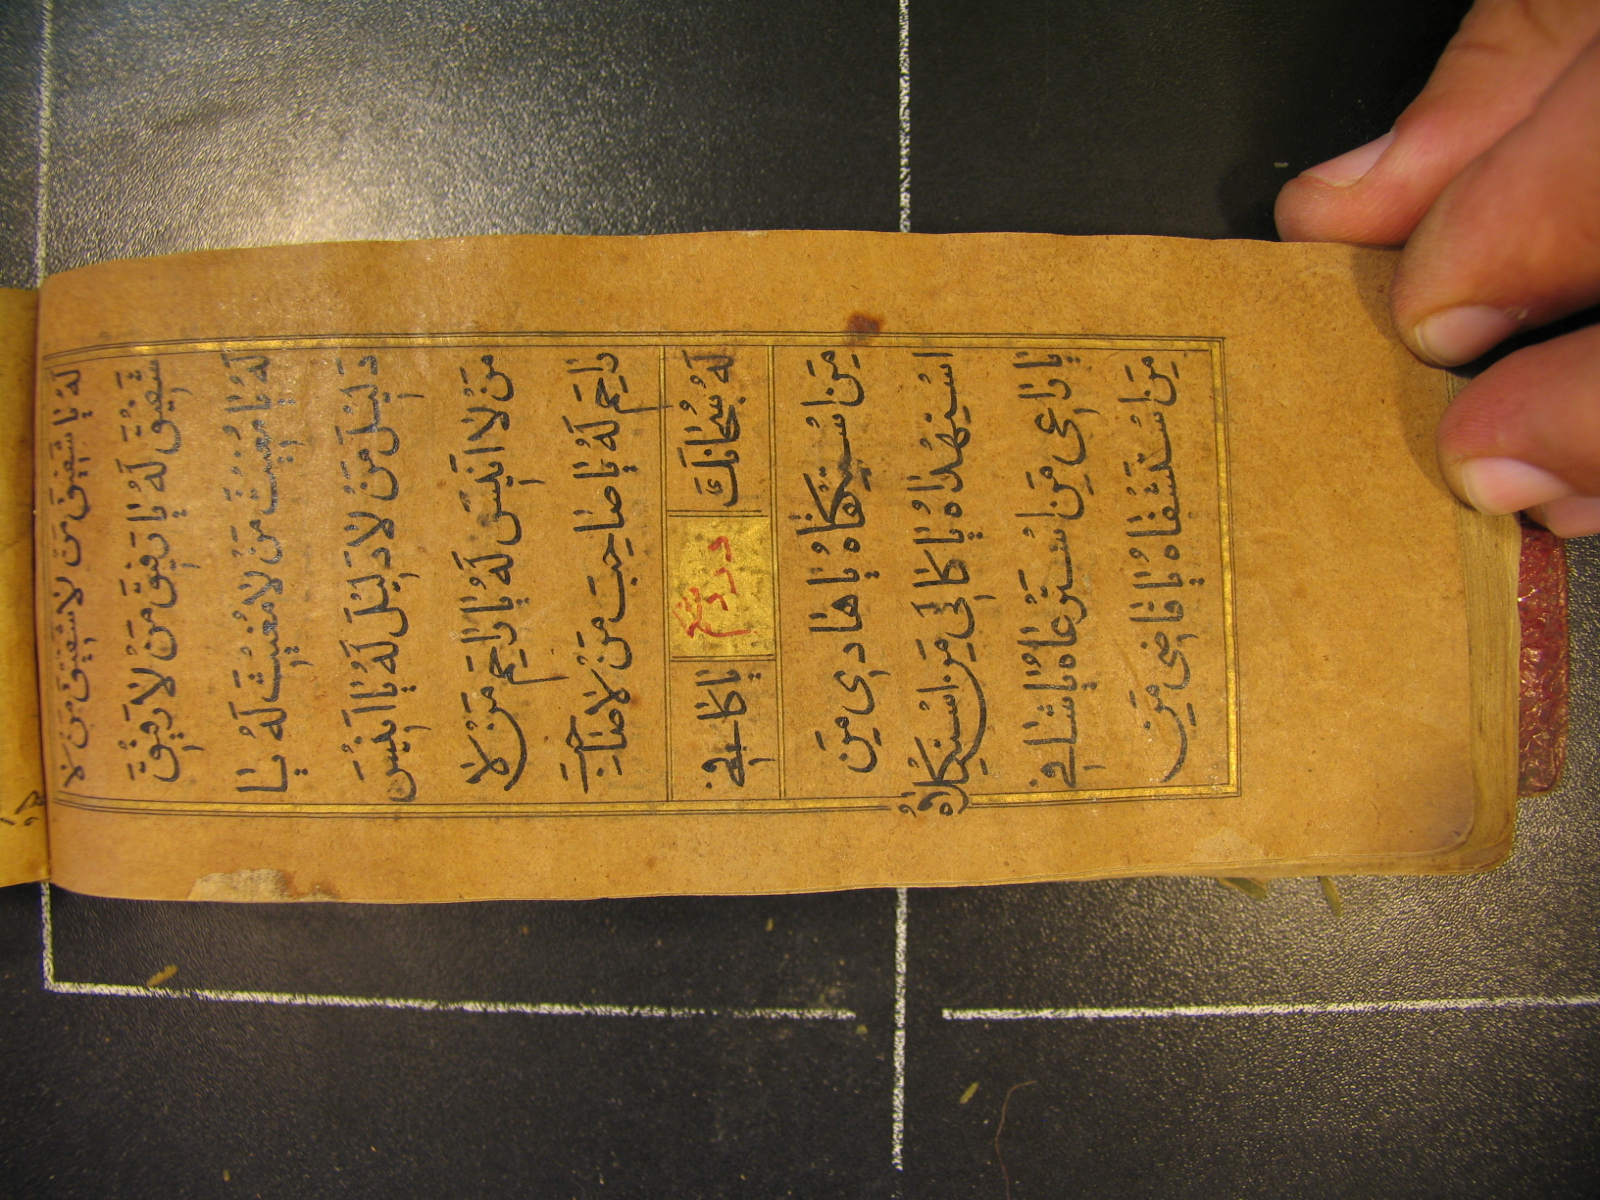 لَهُ يَا شَفِيقَ مَنْ لَا شَفِيقَ مَنْ لَا
شَفِيقَ لَهُ يَا رَفِيقَ مَنْ لَا رَفِيقَ
لَهُ يَا مُغِيثَ مَنْ لَا مُغِيثَ لَهُ يَا
دَلِيلَ مَنْ لَا دَلِيلَ لَهُ يَا اَنِيسَ
مَنْ لَا اَنِيسَ لَهُ يَا رَاحِمَ مَنْ لَا
رَاحِمَ لَهُ يَا صَاحِبَ مَنْ لَا صَاحِبَ
لَهُ سُبْحَانَكَ يَا كَافِي
مَنِ اسْتَكْفَاهُ يَا هَادِي مَنِ
اسْتَهْدَاهُ يَا كَالِئَ مَنِ اسْتَكْلَاهُ
يَا رَاعِي مَنِ اسْتَرْعَاهُ يَا شَافِي
مَنِ اسْتَشْفَاهُ يَا قَاضِي مَنِ